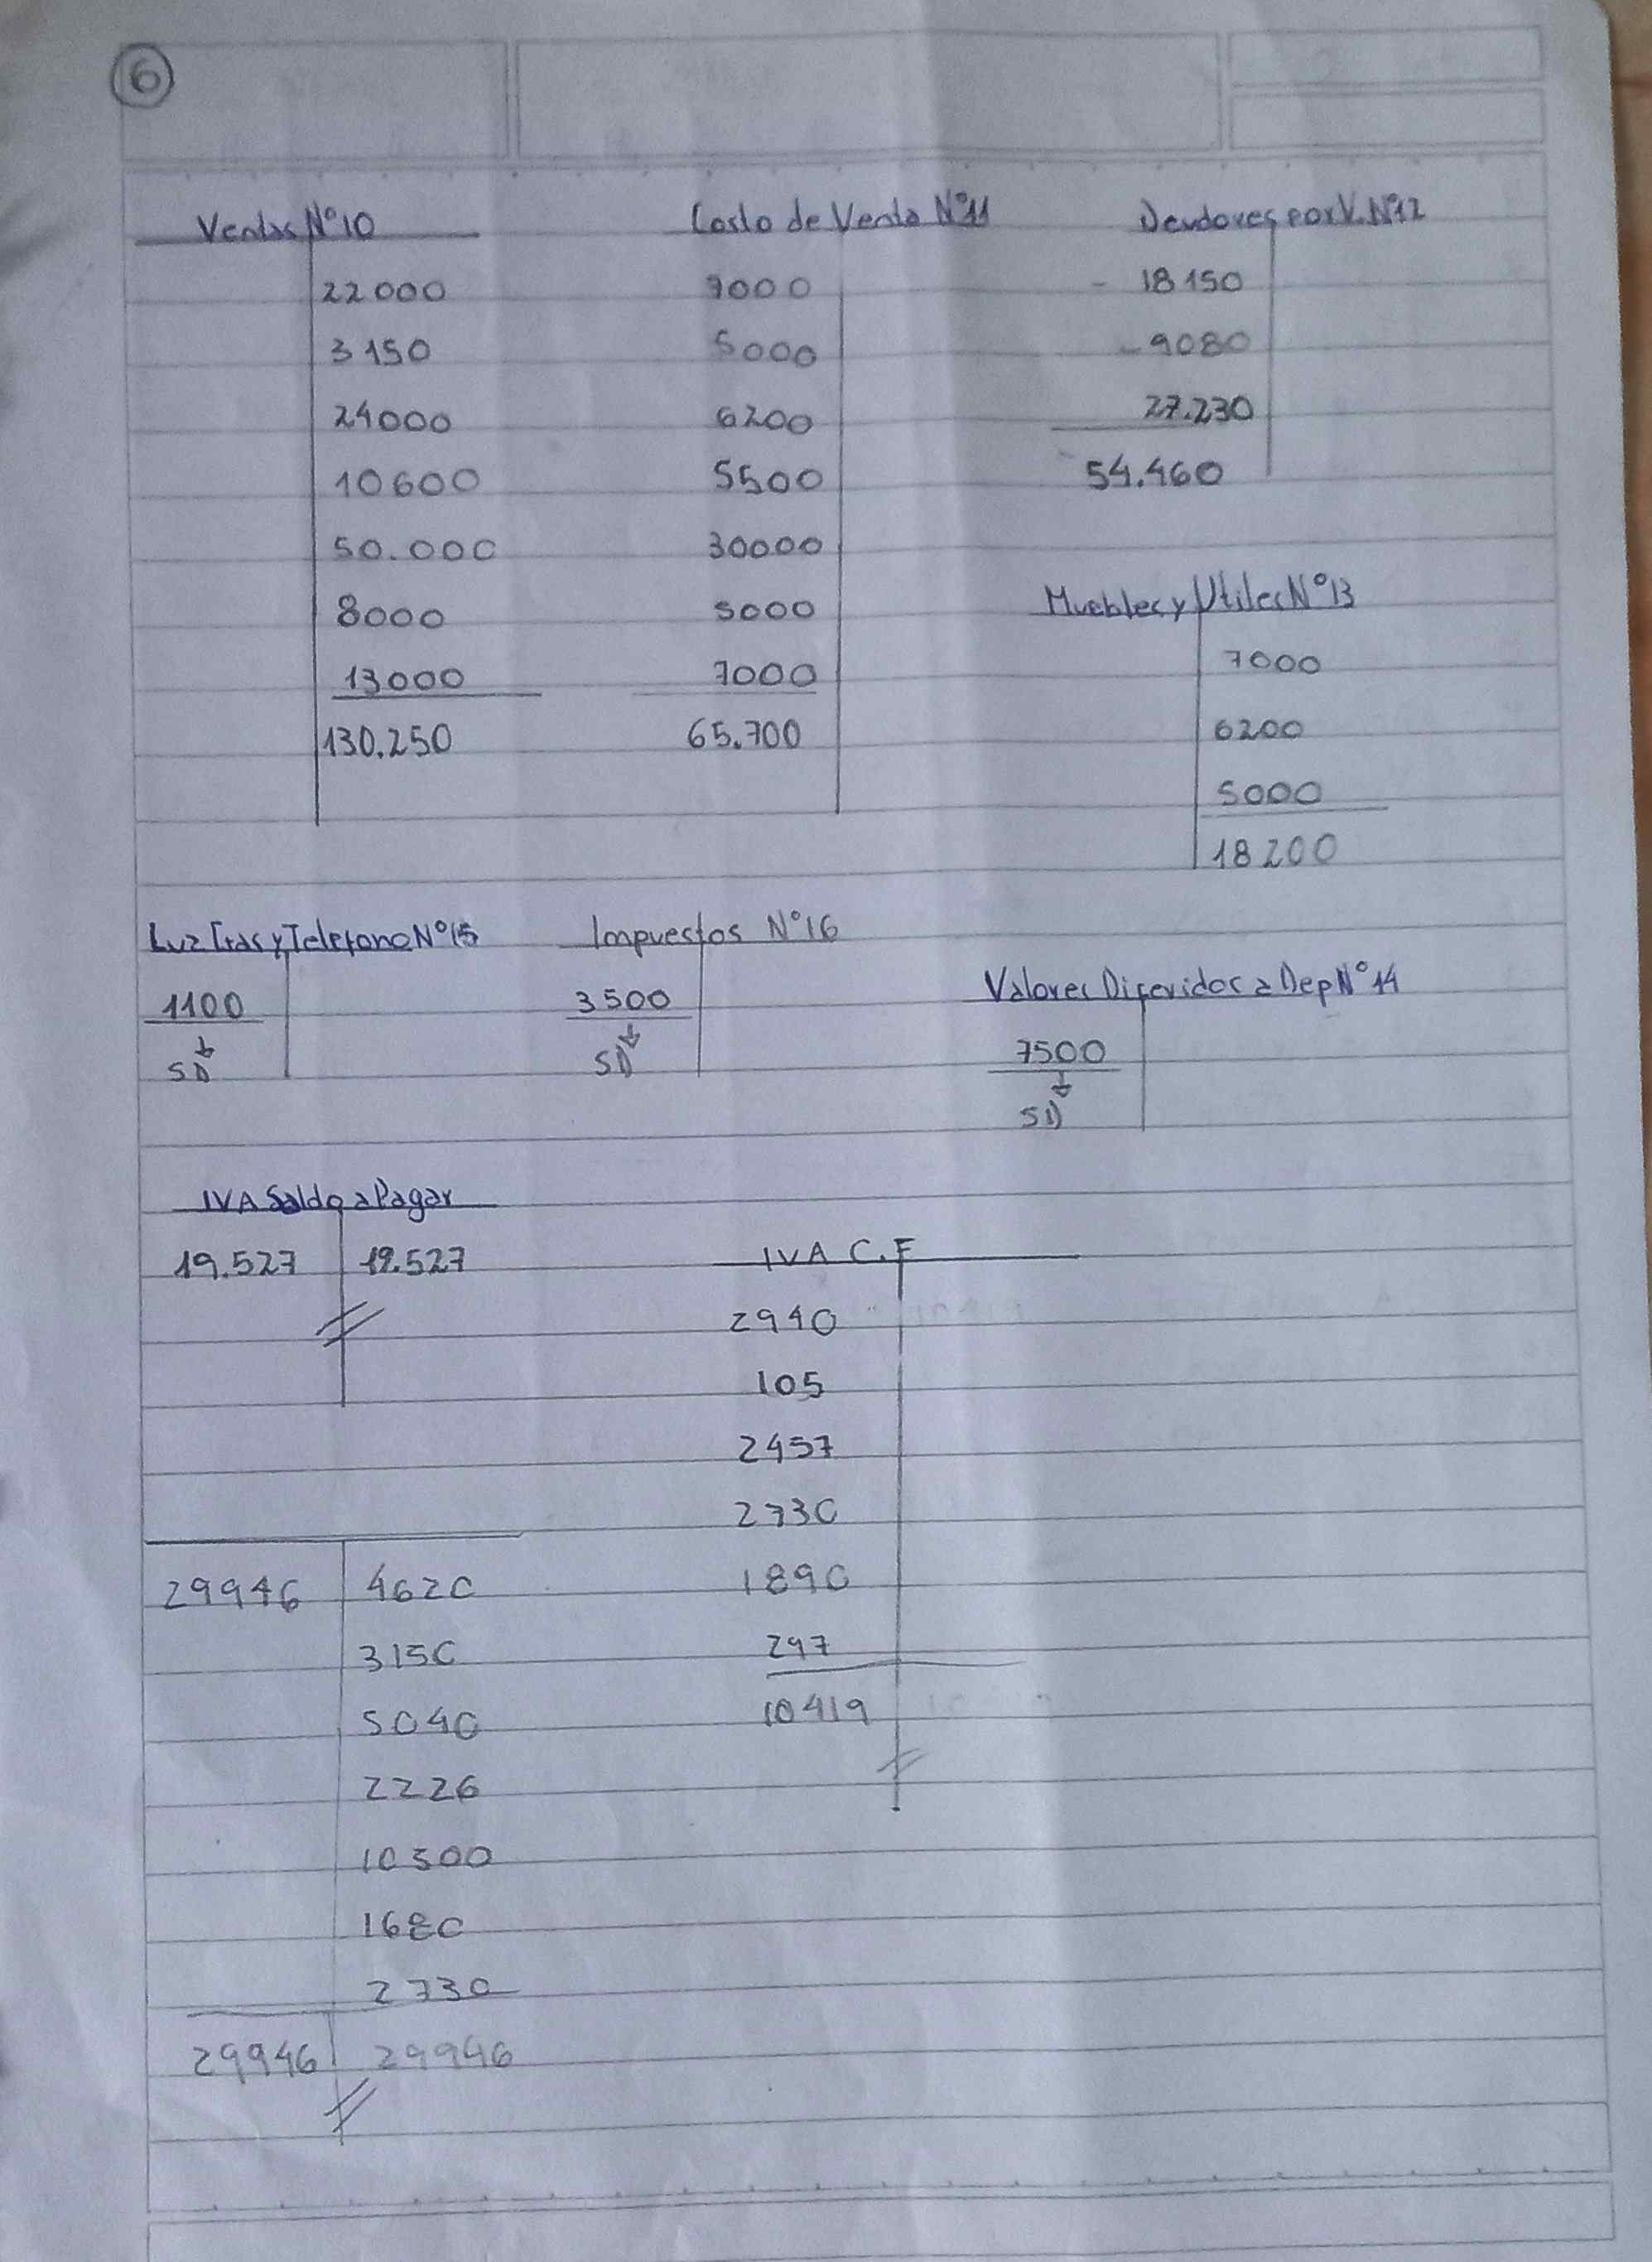 6
Ventas N°10
22000
3150
24000
10600
50.000
8000
13000
130.250
Costo de Venta N°11
7000
5000
6200
5500
30000
5000
7000
65.700
Deudores por V. N°12
- 18150
- 9080
27.230
54.460
Muebles y Utiles N°13
7000
6200
5000
18200
Luz Gas y Telefono N°15
1100
SD
Impuestos N°16
3500
SD
Valores Diferidos a Dep N°14
7500
SD
IVA Saldo a Pagar
19.527 19.527
IVA C.F
2940
105
2457
2730
1890
297
10419
29946 4620
3150
5040
2226
10500
1680
2730
29946 29946